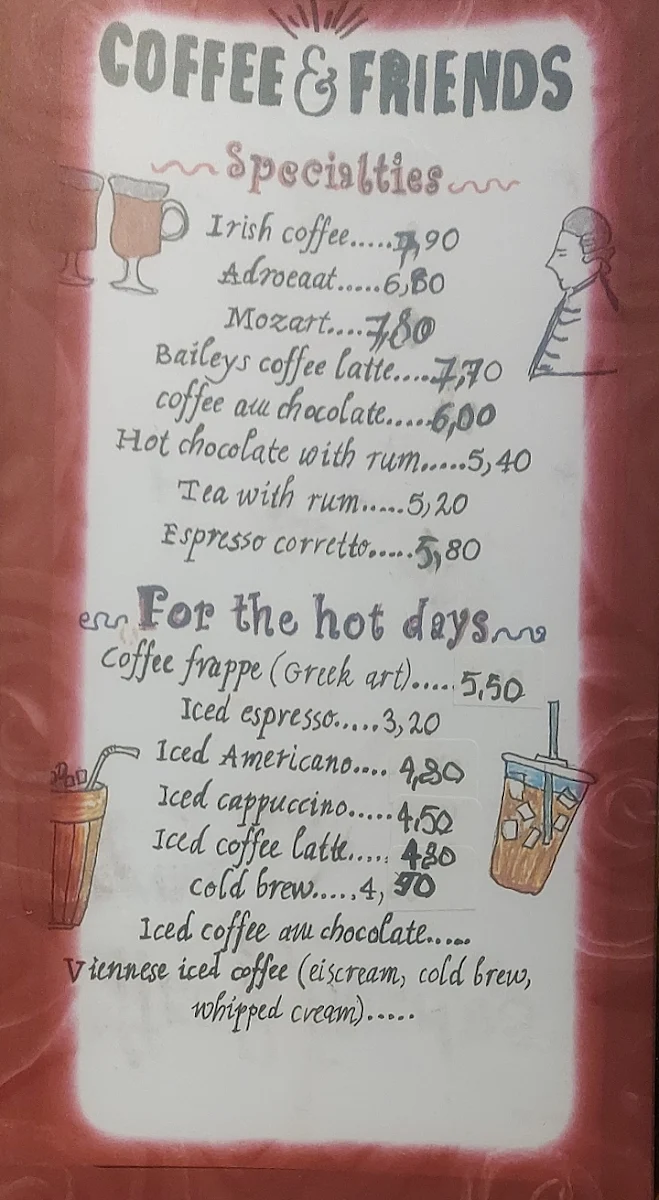 COFFEE & FRIENDS
Specialties
Irish coffee.....7,90
Adroeaat.....6,80
Mozart....7,80
Baileys coffee latte....7,70
coffee au chocolate.....6,00
Hot chocolate with rum.....5,40
Tea with rum.....5,20
Espresso corretto.....5,80
For the hot days
Coffee frappe (Greek art).....5,50
Iced espresso.....3,20
Iced Americano....
Iced cappuccino.....4,50
Iced coffee latte.....
cold brew.....4,
Iced coffee au chocolate.....
Viennese iced coffee (eiscream, cold brew,
whipped cream).....